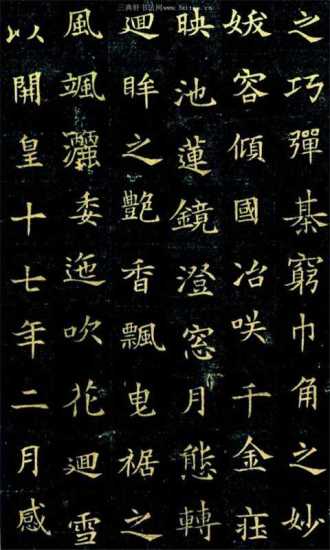 三典轩书法网
之巧彈棊窮巾角之妙
妭容傾國冶咲千金庄
映池蓮鏡澄窓月態轉
迴眸之艷香飄曳裾之
風颯灑委迤吹花迴雪
以開皇十七年二月感